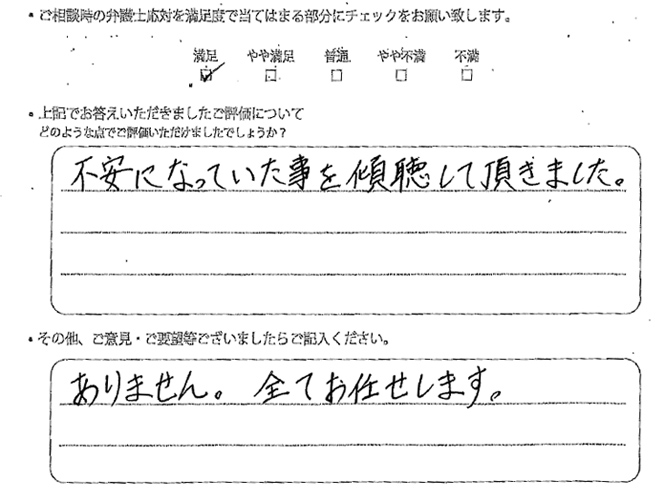 ・ご相談時の弁護士応対を満足度で当てはまる部分にチェックをお願い致します。
満足 やや満足 普通 やや不満 不満
☑ □ □ □ □
・上記でお答えいただきましたご評価について
どのような点でご評価いただけましたでしょうか？
不安になっていた事を傾聴して頂きました。
・その他、ご意見・ご要望等ございましたらご記入ください。
ありません。全てお任せします。